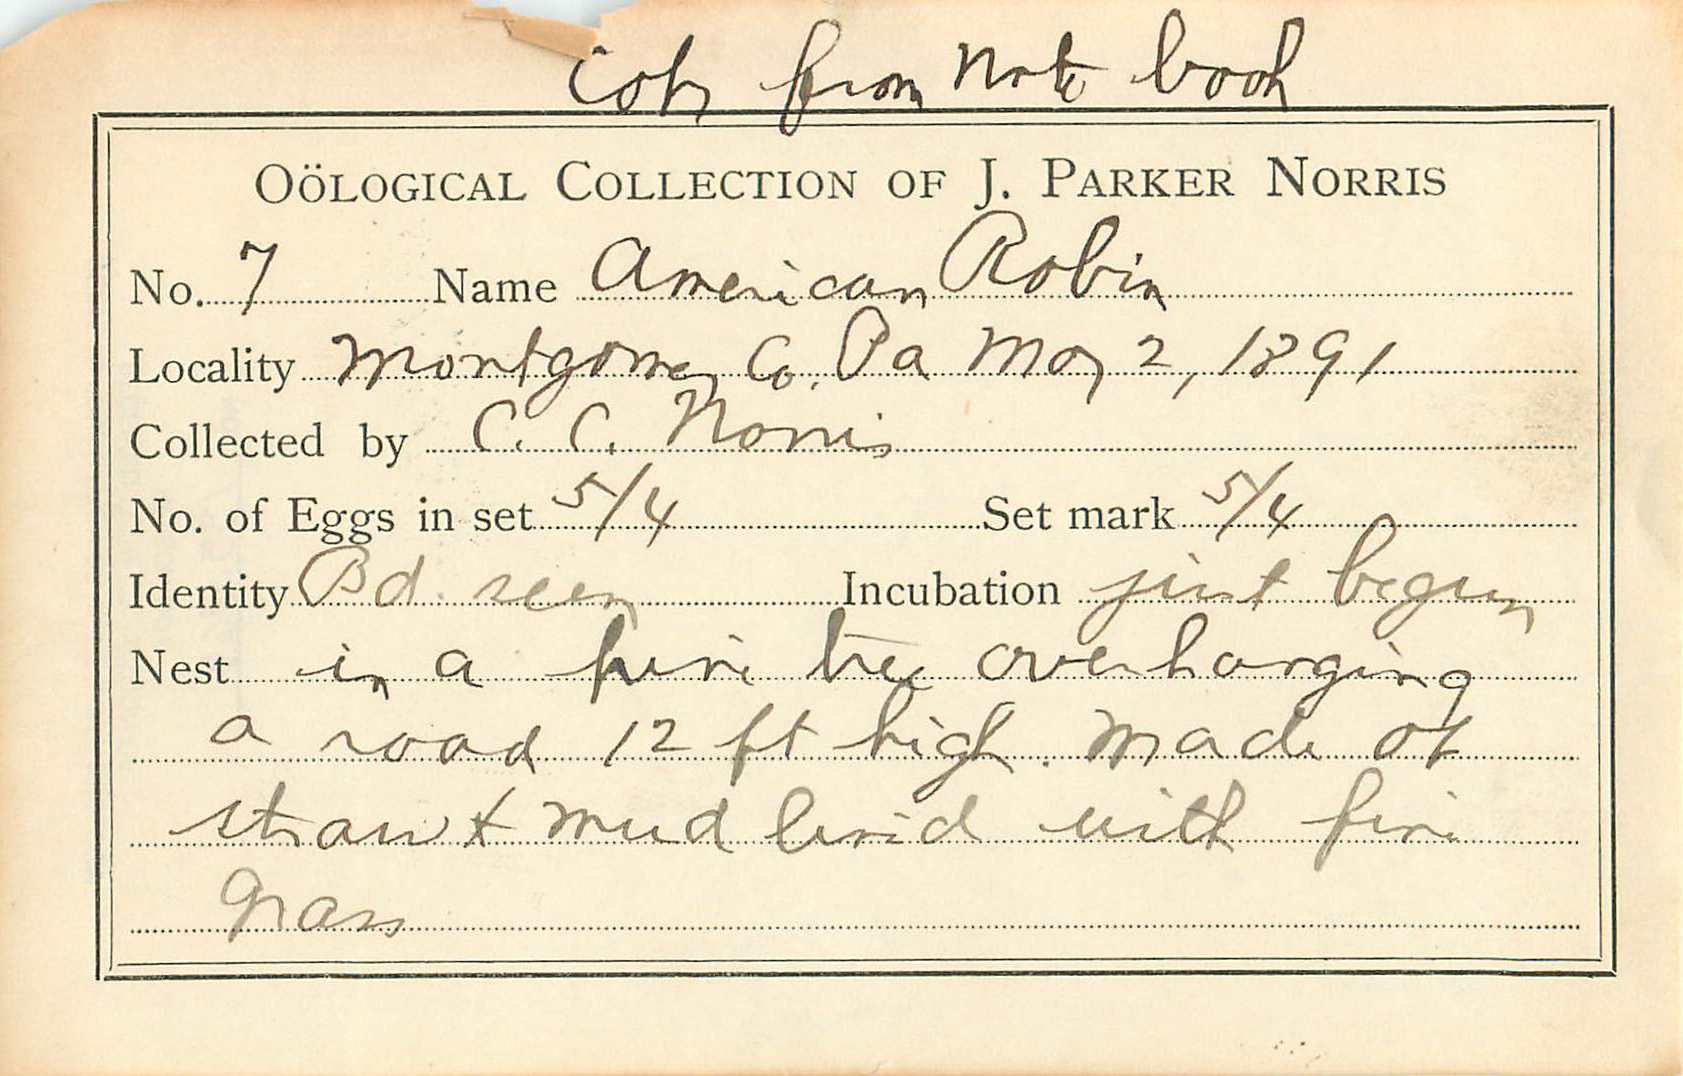 Copy from Note book
OÖLOGICAL COLLECTION OF J. PARKER NORRIS
No. 7 Name American Robin
Locality Montgomery Co. Pa May 2, 1891
Collected by C. C. Norris
No. of Eggs in set 5/4 Set mark 5/4
Identity Bd. seen Incubation just begun
Nest in a pine tree overhanging
a road 12 ft high. Made of
straw & mud lined with fine
grass